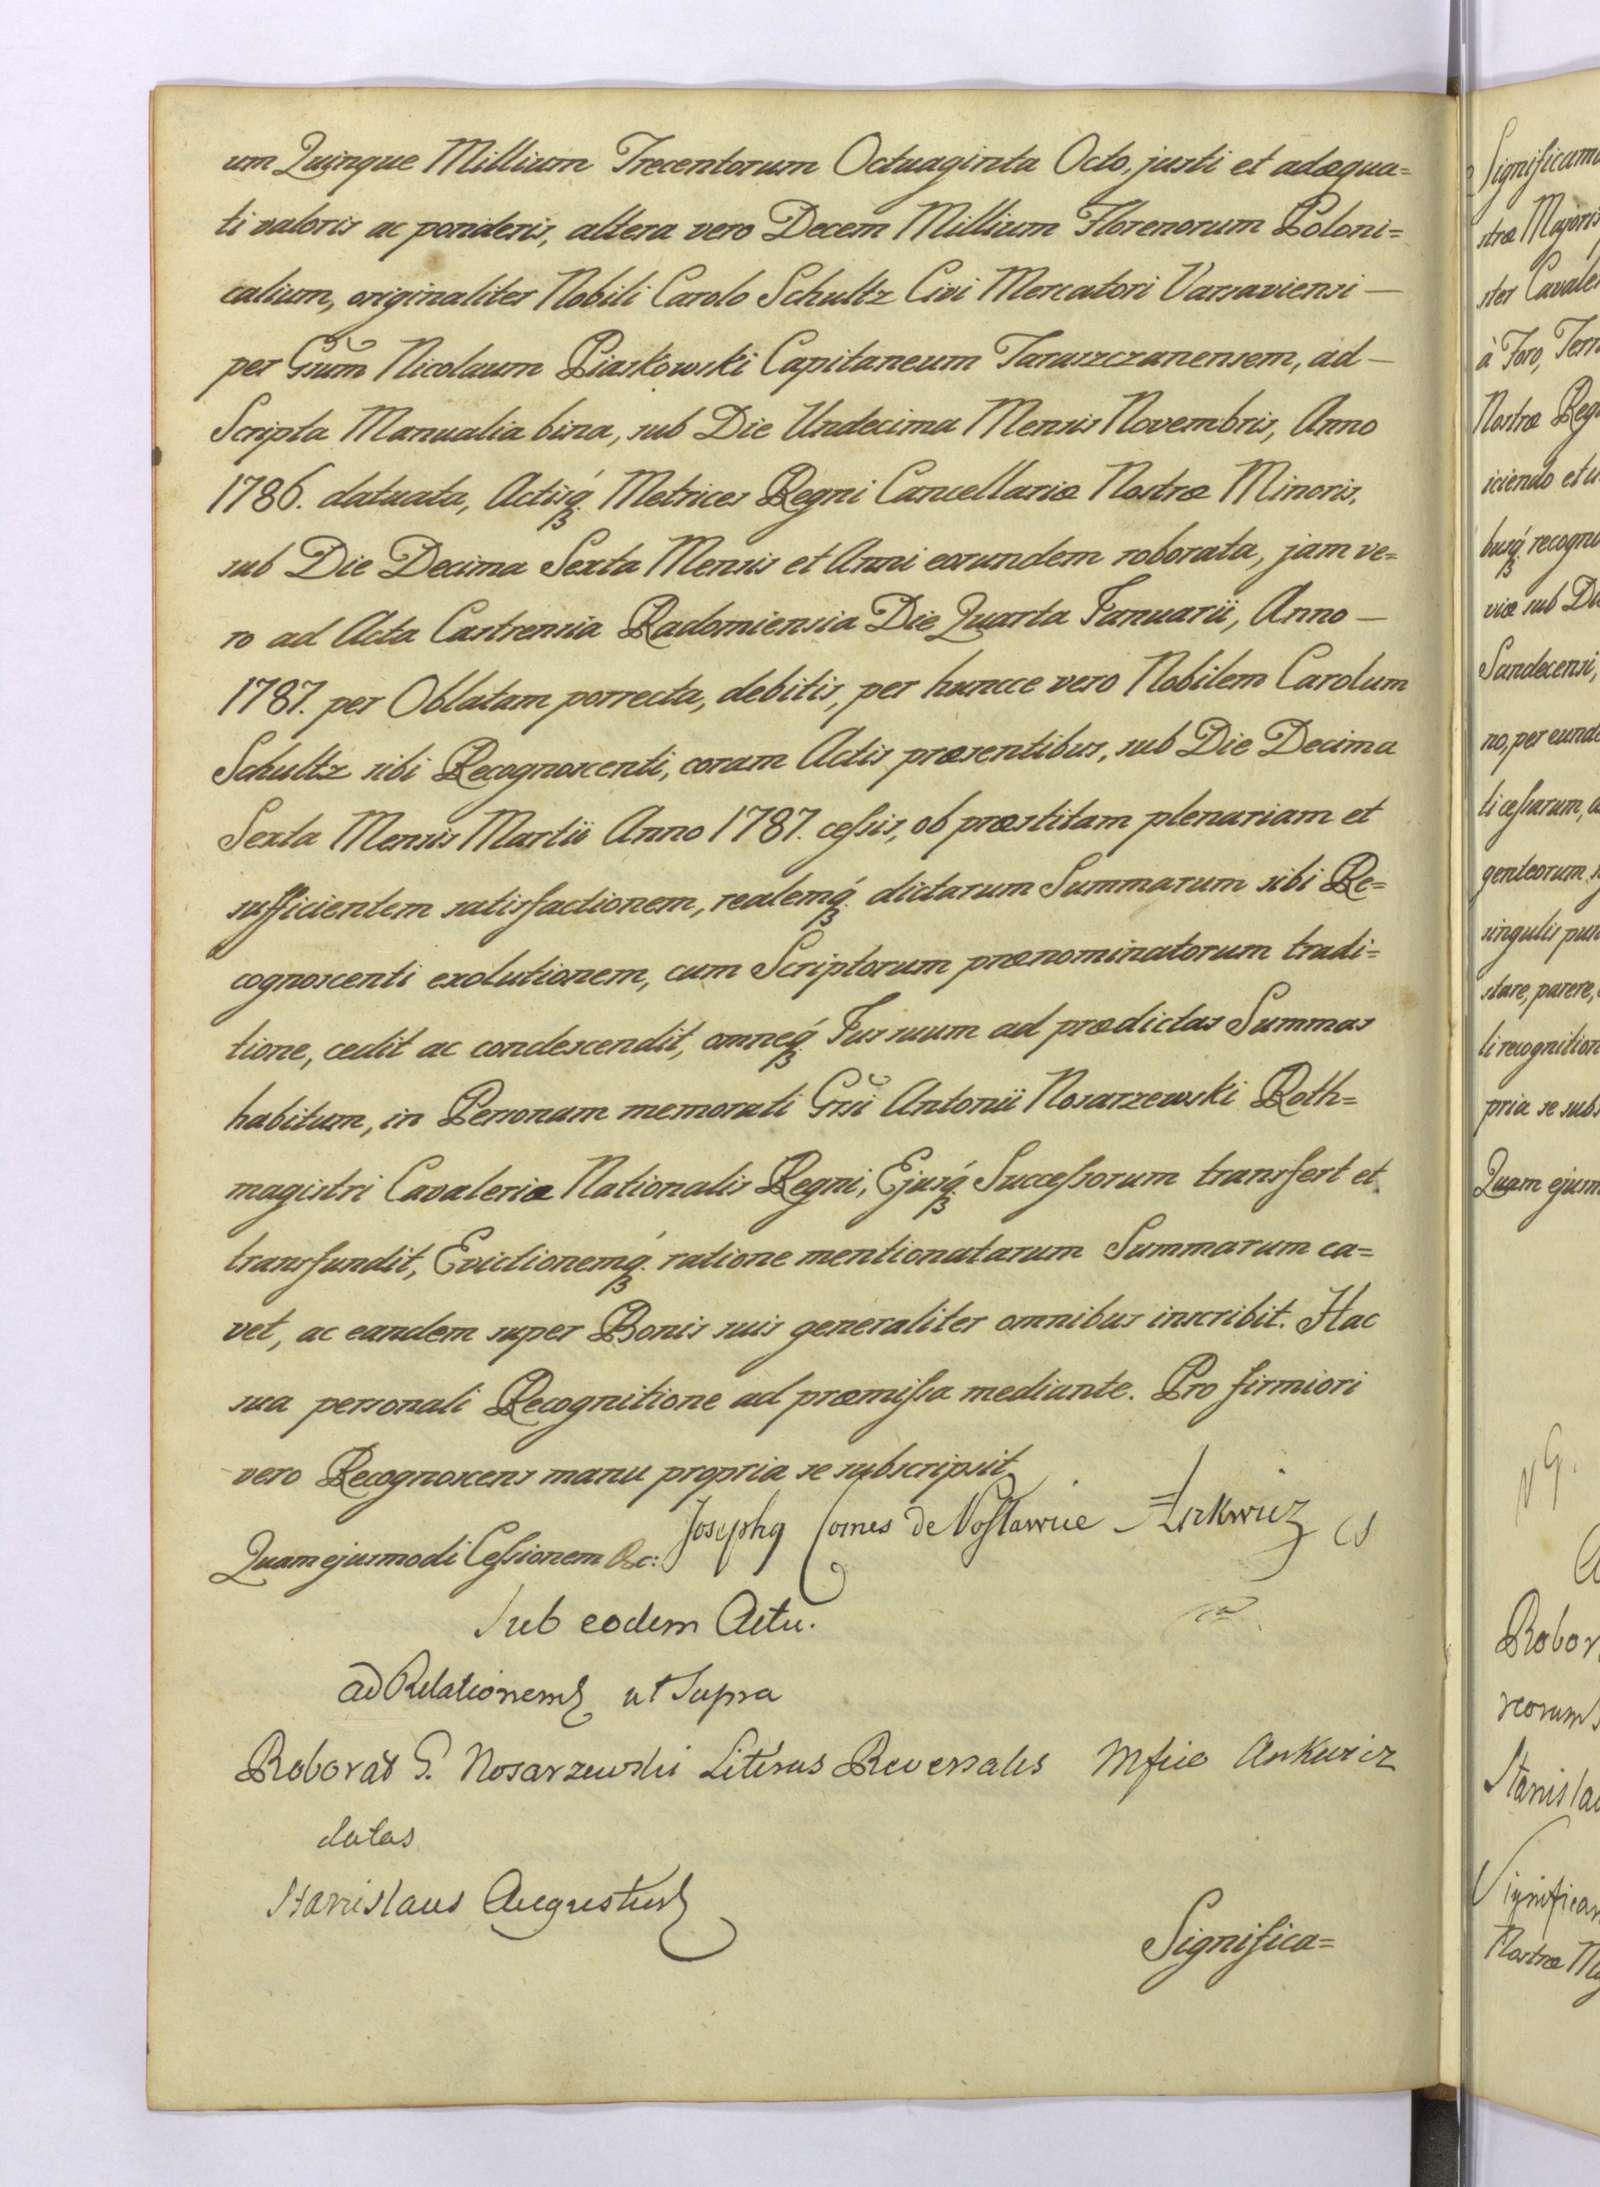 um Quinque Millium Trecentorum Octuaginta Octo, justi et adæqua=
ti valoris ac ponderis, altera vero Decem Millium Florenorum Poloni=
calium, originaliter Nobili Carolo Schultz Civi Mercatori Varsaviensi —
per Gsum Nicolaum Piaskowski Capitaneum Taraszczanensem, ad —
Scripta Manualia bina, sub Die Undecima Mensis Novembris, Anno
1786. datuata, Actisq́ Metrices Regni Cancellariæ Nostræ Minoris,
sub Die Decima Sexta Mensis et Anni eorundem roborata, jam ve=
ro ad Acta Castrensia Radomiensia Die Quarta Januarii, Anno —
1787. per Oblatam porrecta, debitis, per huncce vero Nobilem Carolum
Schultz sibi Recognoscenti, coram Actis præsentibus, sub Die Decima
Sexta Mensis Martii Anno 1787. cessis, ob præstitam plenariam et
sufficientem satisfactionem, realemq́ dictarum Summarum sibi Re=
cognoscenti exolutionem, cum Scriptorum prænominatorum tradi=
tione, cedit ac condescendit, omneq́ Jus suum ad prædictas Summas
habitum, in Personam memorati Gsi Antonii Nosarzewski Roth=
magistri Cavaleriæ Nationalis Regni, Ejusq́ Successorum transfert et
transfundit, Evictionemq́ ratione mentionatarum Summarum ca=
vet, ac eandem super Bonis suis generaliter omnibus inscribit. Hac
sua personali Recognitione ad præmissa mediante. Pro firmiori
vero Recognoscens manu propria se subscripsit
Josephq Comes de Posławice Ankwicz CS
Quam ejusmodi Cessionem &c:
Sub eodem Actu.
ad Relationem ut Supra
Roborat G. Nosarzewski Literas Reversales Mfico Ankwicz
datas
Stanislaus Augustus
Significa=
Significamu
stræ Majoris
ster Cavale
à Foro, Terr
Nostræ Reg
iciendo et
busq́ recogn
viæ sub Di
Sandecensi,
no, per eund
ti cessarum,
genteorum
singulis pun
stare, parere,
li recognition
pria se subs
Quam ejusm
N G.
Robor
reorum
Stanislau
Significam
Nostræ M